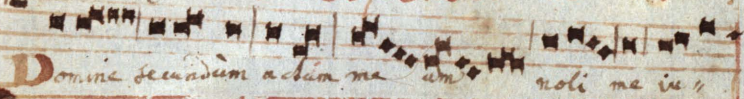 Domine secundùm actum me um noli me iu⸗